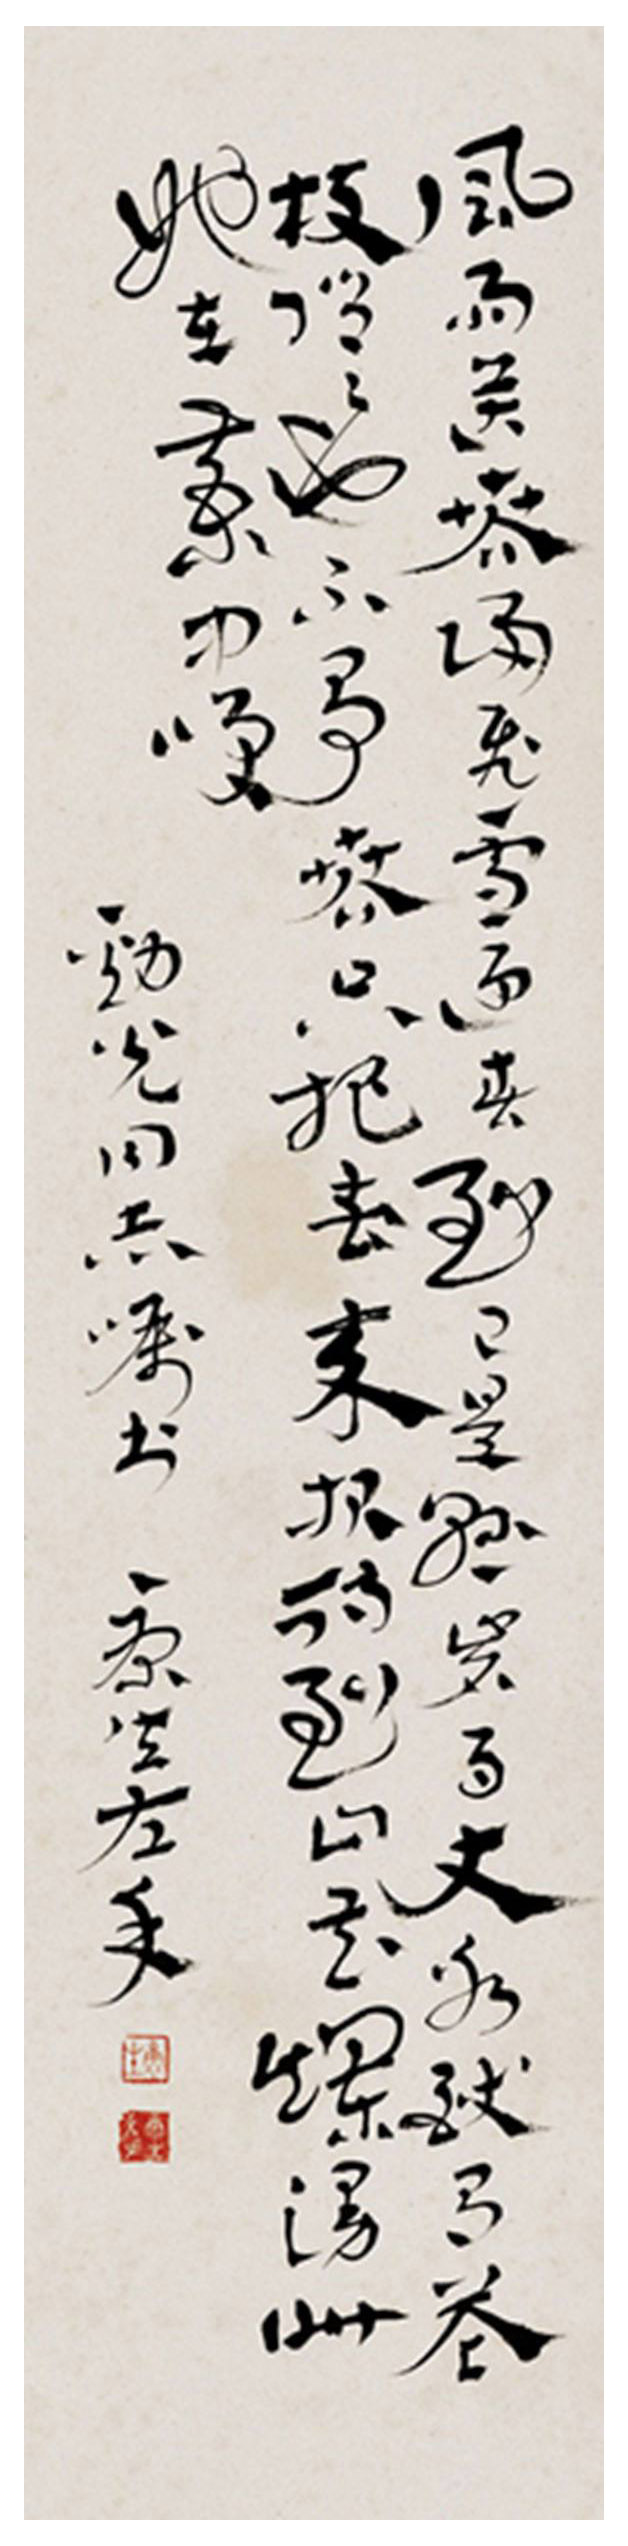 風雨送春歸飛雪迎春到已是懸崖百丈冰猶有花
枝俏々也不爭春只把春來報待到山花爛漫時
她在叢中笑
勁光同志嘱书
左手